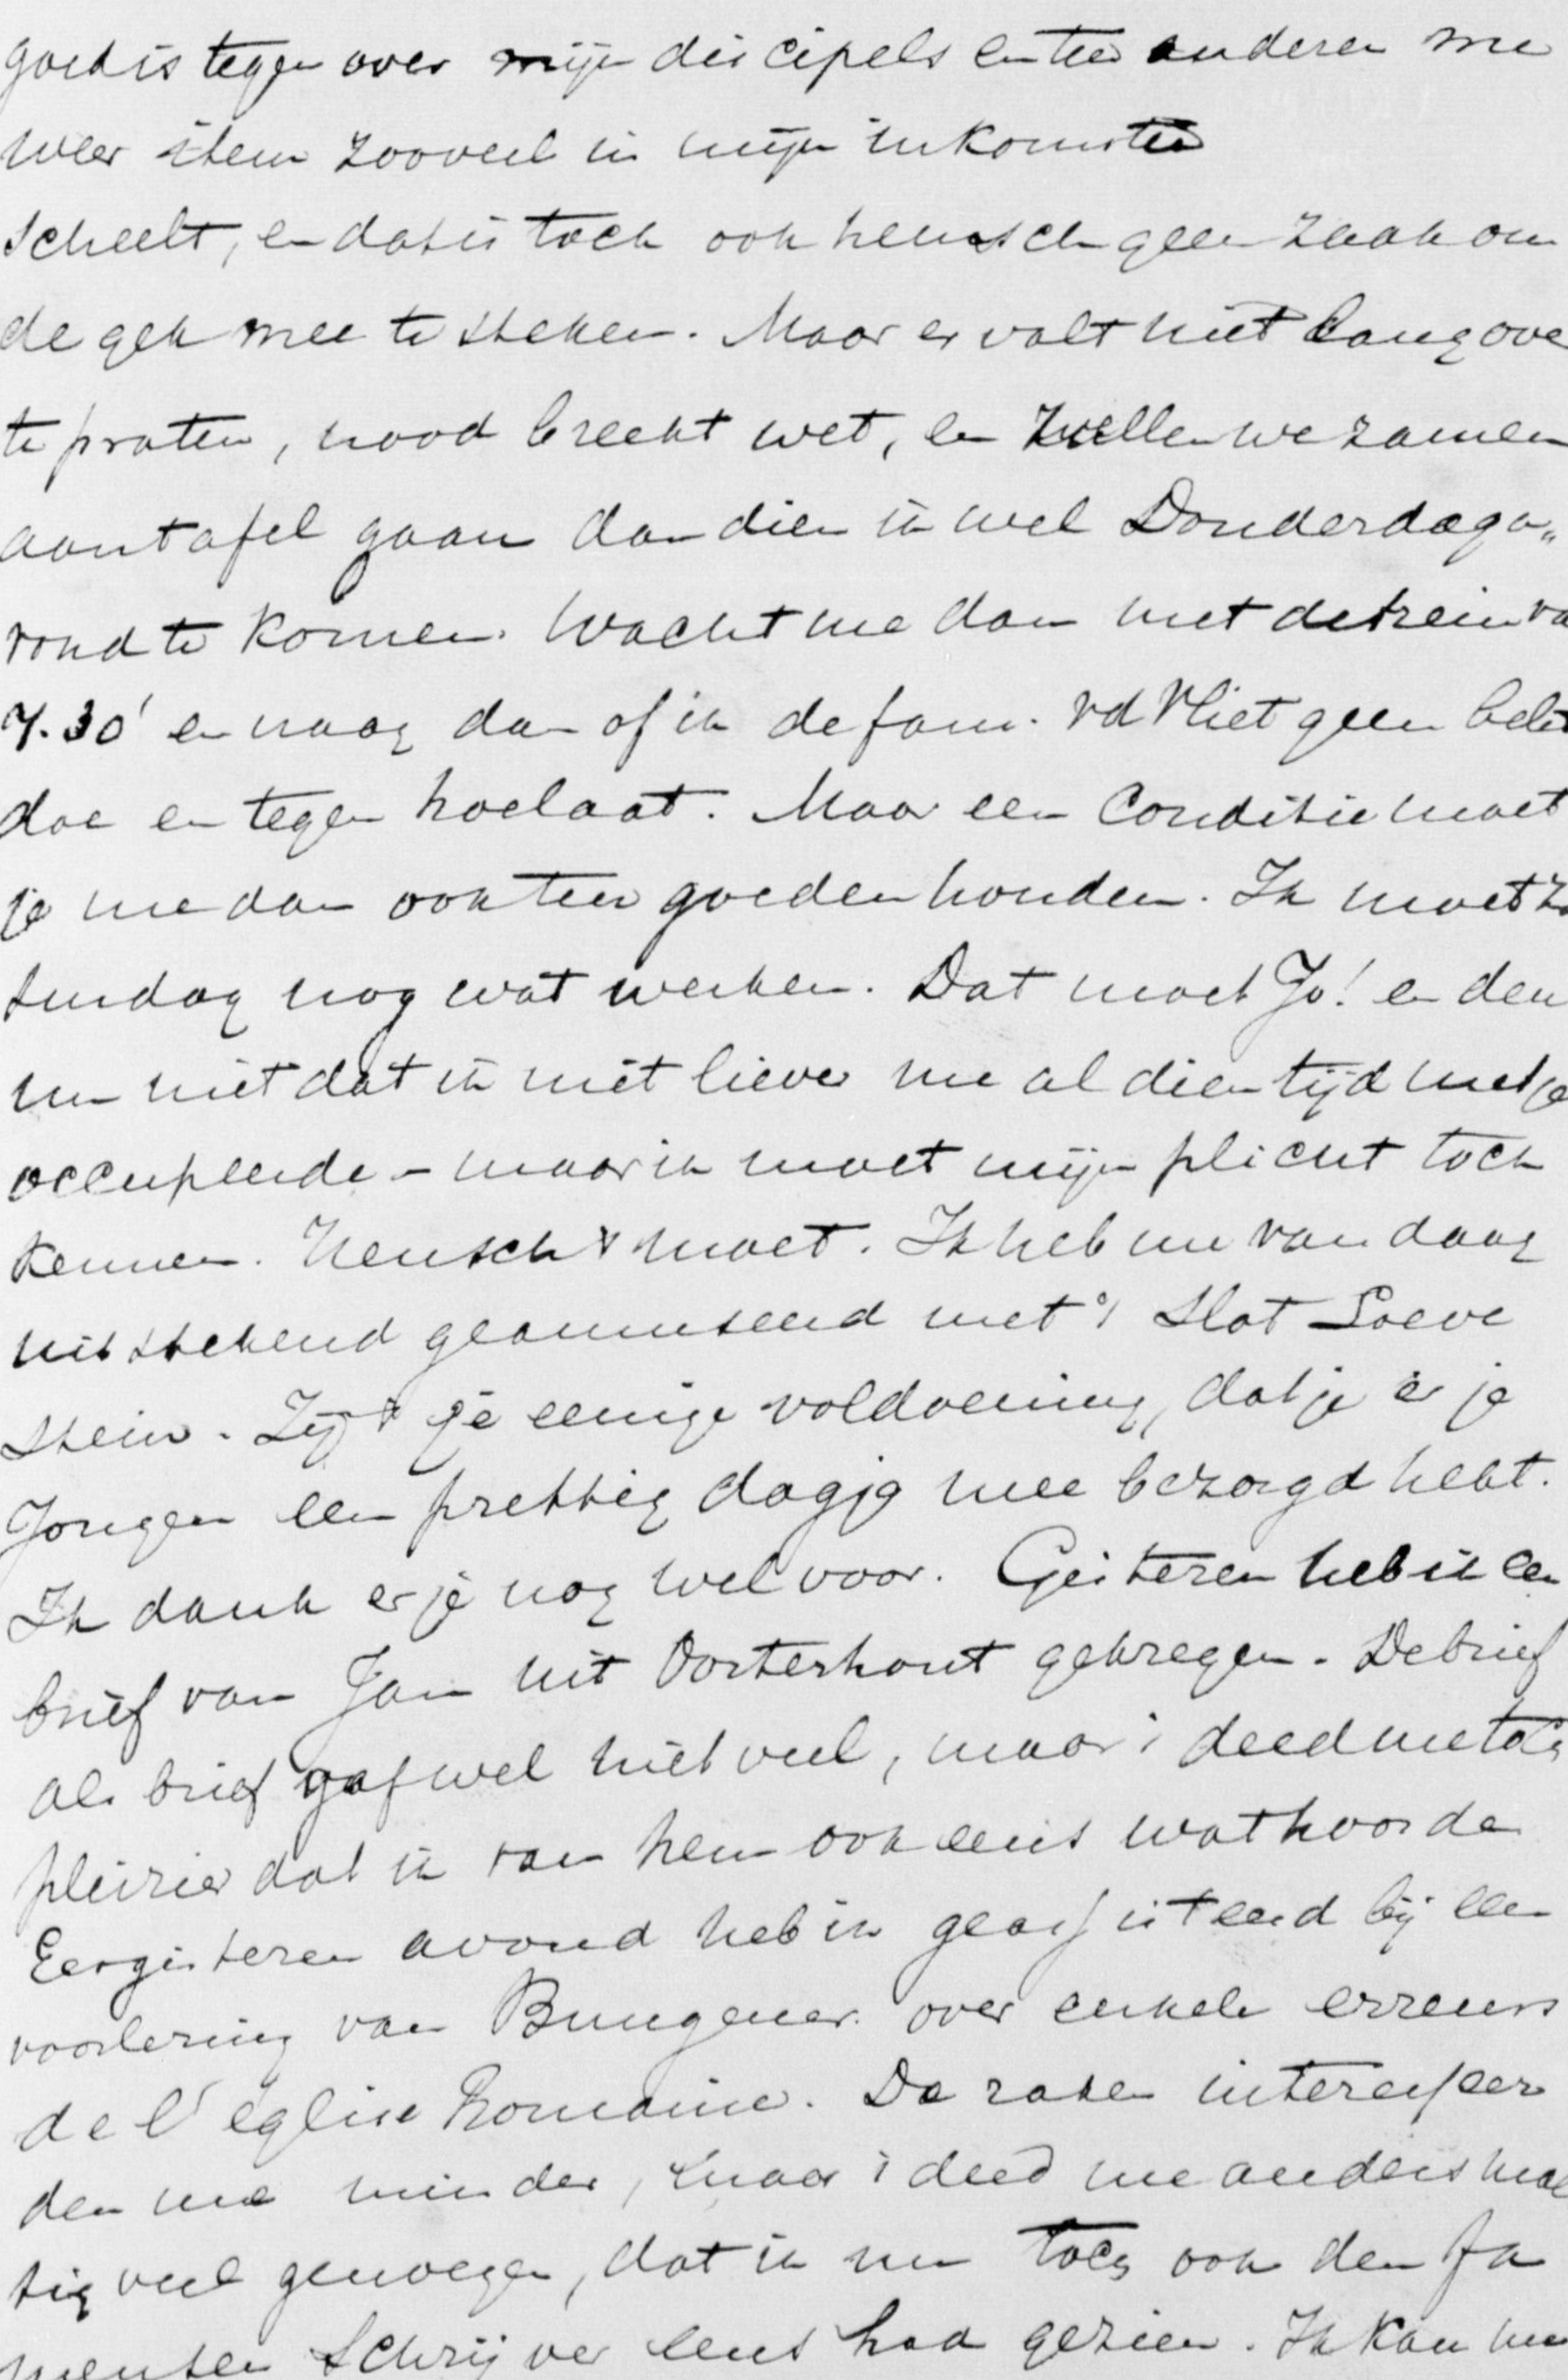 goed is tegenover mijn discipels en ten anderen me
weer item zooveel in mijn inkomsten
scheelt, en dat is toch ook heusch geen zaak om
de gek mee te steken. Maar er valt niet lang ove
te praten, nood breekt wet, en zullen we zamen
aan tafel gaan dan dien ik wel Donderdaga„
vond te komen. Wacht me dan met de trein va
7.30' en vraag dan of ik de fam. vd Vliet geen belet
doe en tegen hoelaat. Maar een Conditie moet
je me dan ook ten goeden houden. Ik moet Za
turdag nog wat werken. Dat moet Jo! en den
nu niet dat ik niet liever me al dien tijd met je
occupeerde – maar ik moet mijn plicht toch
kennen. Heusch 't moet. Ik heb me van daag
uitstekend geamuseerd met 't Slot Loeve
stein. Zij 't je eenige voldoening, dat je er je
Jongen een prettig dagje mee bezorgd hebt.
Ik dank er je nog wel voor. Gisteren heb ik een
brief van Jan uit Oosterhout gekregen. De brief
als brief gaf wel niet veel, maar 't deed me toch
pleizier dat ik van hem ook eens wat hoorde
Eergisteren avond heb ik geassisteerd bij een
voorlezing van Bungener over enkele erreurs
de l'église Romaine. De zaken interesseer
den me minder, maar 't deed me anders mae
tig veel genoegen, dat ik nu toch ook den fa
meusen Schrijver eens had gezien. Ik kan me